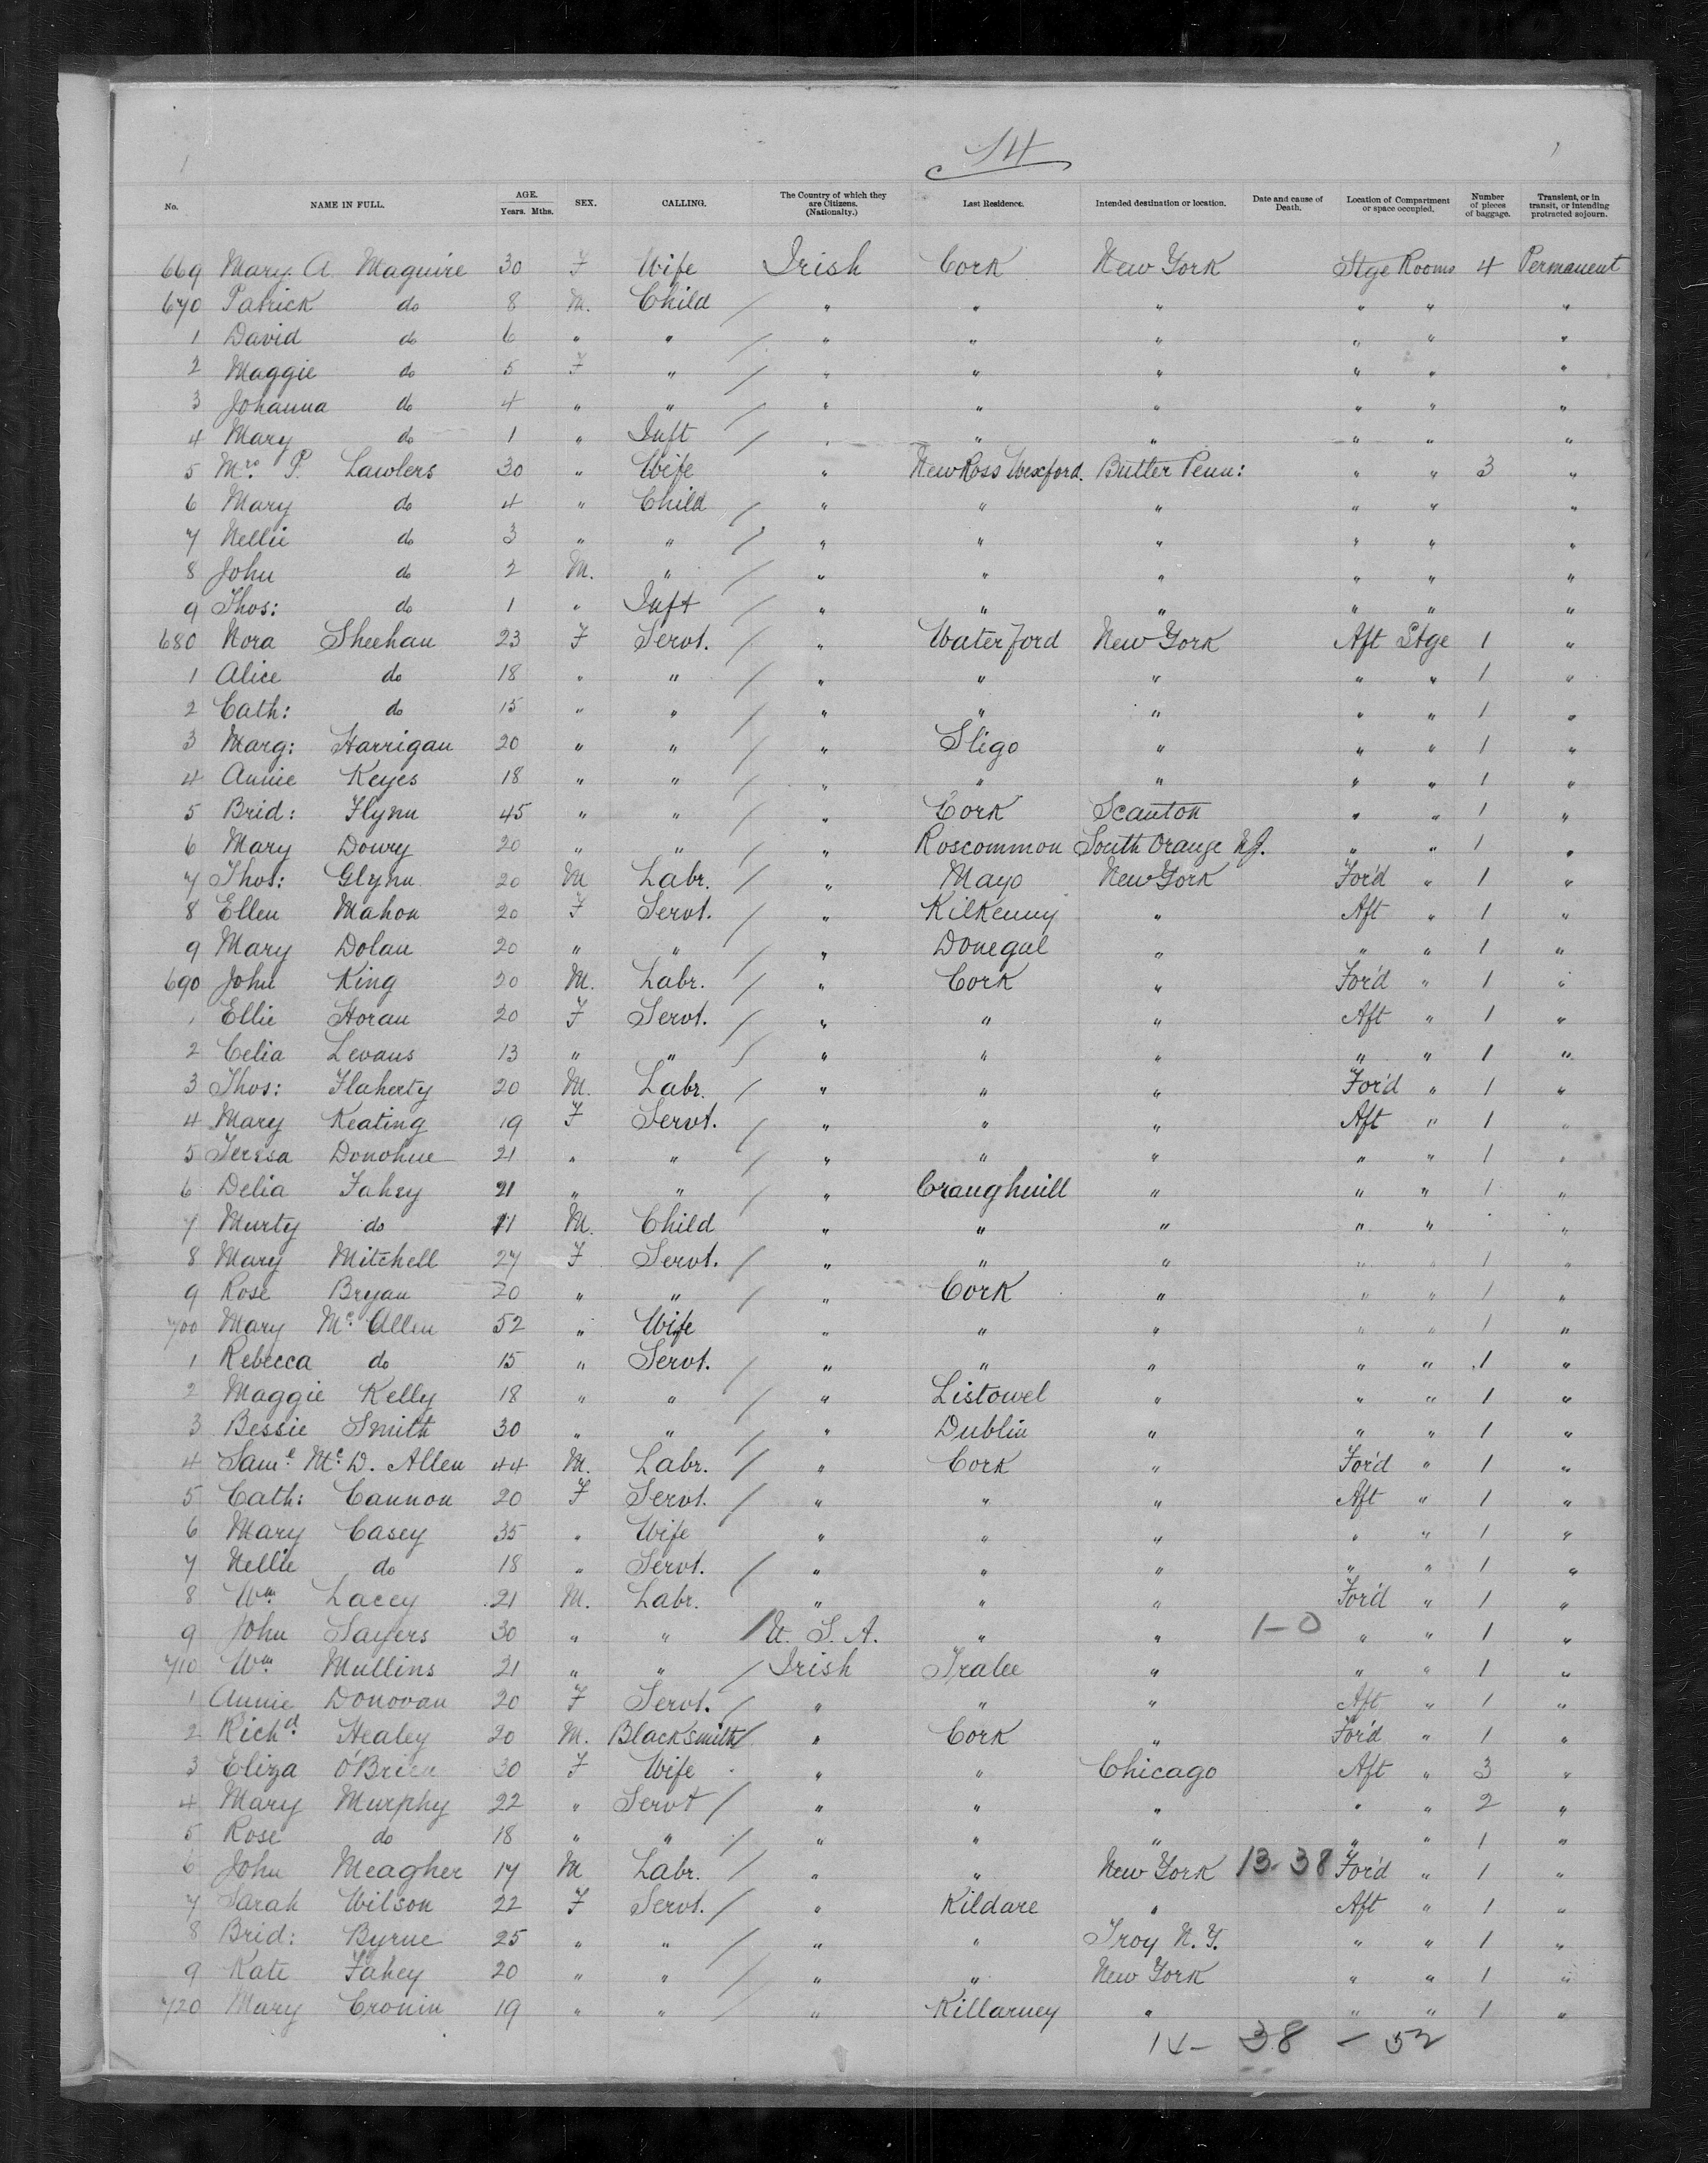 14
No. NAME IN FULL. AGE. Years. Mths. SEX. CALLING. The Country of which they are Citizens. (Nationalty.) Last Residence. Intended destination or location. Date and cause of Death. Location of Compartment or space occupied. Number of pieces of baggage. Transient, or in transit, or intending protracted sojourn.
669 Mary A Maguire 30 F Wife Irish Cork New York Stge Rooms 4 Permanent
670 Patrick do 8 M. Child / " " " " " "
1 David do 6 " " / " " " " " "
2 Maggie do 5 F " / " " " " " "
3 Johanna do 4 " " / " " " " " "
4 Mary do 1 " Inft / " " " " " "
5 Mrs P. Lawlers 30 " Wife " New Ross Wexford. Butler Penn: " " 3 "
6 Mary do 4 " Child / " " " " " "
7 Nellie do 3 " " / " " " " " "
8 John do 2 M. " / " " " " " "
9 Thos: do 1 " Inft / " " " " " "
680 Nora Sheehan 23 F Servt. / " Waterford New York Aft Stge 1 "
1 Alice do 18 " " / " " " " " 1 "
2 Cath: do 15 " " / " " " " " 1 "
3 Marg: Harrigan 20 " " / " Sligo " " " 1 "
4 Annie Keyes 18 " " / " " " " " 1 "
5 Brid: Flynn 45 " " / " Cork Scanton " " 1 "
6 Mary Dowry 20 " " / " Roscommon South Orange N.J. " " 1 "
7 Thos: Glynn 20 M Labr. / " Mayo New York For'd " 1 "
8 Ellen Mahon 20 F Servt. / " Kilkenny " Aft " 1 "
9 Mary Dolan 20 " " / " Donegal " " " 1 "
690 John King 20 M. Labr. / " Cork " For'd " 1 "
1 Ellie Horan 20 F Servt. / " " " Aft " 1 "
2 Celia Levans 13 " " / " " " " " 1 "
3 Thos: Flaherty 20 M. Labr. / " " " For'd " 1 "
4 Mary Keating 19 F Servt. / " " " Aft " 1 "
5 Teresa Donohue 21 " " / " " " " " 1 "
6 Delia Fahey 21 " " / " Craughwill " " " 1 "
7 Murty do 11 M. Child " " " " " "
8 Mary Mitchell 27 F Servt. / " " " " " 1 "
9 Rose Bryan 20 " " / " Cork " " " 1 "
700 Mary Mc Allen 52 " Wife " " " " " 1 "
1 Rebecca do 15 " Servt. / " " " " " 1 "
2 Maggie Kelly 18 " " / " Listowel " " " 1 "
3 Bessie Smith 30 " " / " Dublin " " " 1 "
4 Saml Mc D. Allen 44 M. Labr. / " Cork " For'd " 1 "
5 Cath: Cannon 20 F Servt. / " " " Aft " 1 "
6 Mary Casey 35 " Wife " " " " " 1 "
7 Nellie do 18 " Servt. / " " " " " 1 "
8 Wm Lacey 21 M. Labr. " " " For'd " 1 "
9 John Sayers 30 " " / U. S. A. " " 1-0 " " 1 "
710 Wm Mullins 21 " " / Irish Tralee " " " 1 "
1 Annie Donovan 20 F Servt. / " " " Aft " 1 "
2 Richd Healey 20 M. Blacksmith / " Cork " For'd " 1 "
3 Eliza O'Brien 30 F Wife " " Chicago Aft " 3 "
4 Mary Murphy 22 " Servt / " " " " " 2 "
5 Rose do 18 " " / " " " " " 1 "
6 John Meagher 17 M Labr. / " " New York 13-38 For'd " 1 "
7 Sarah Wilson 22 F Servt. / " Kildare " Aft " 1 "
8 Brid: Byrne 25 " " / " " Troy N. Y. " " 1 "
9 Kate Fahey 20 " " / " " New York " " 1 "
720 Mary Cronin 19 " " / " Killarney " " " 1 "
14- 38 - 52